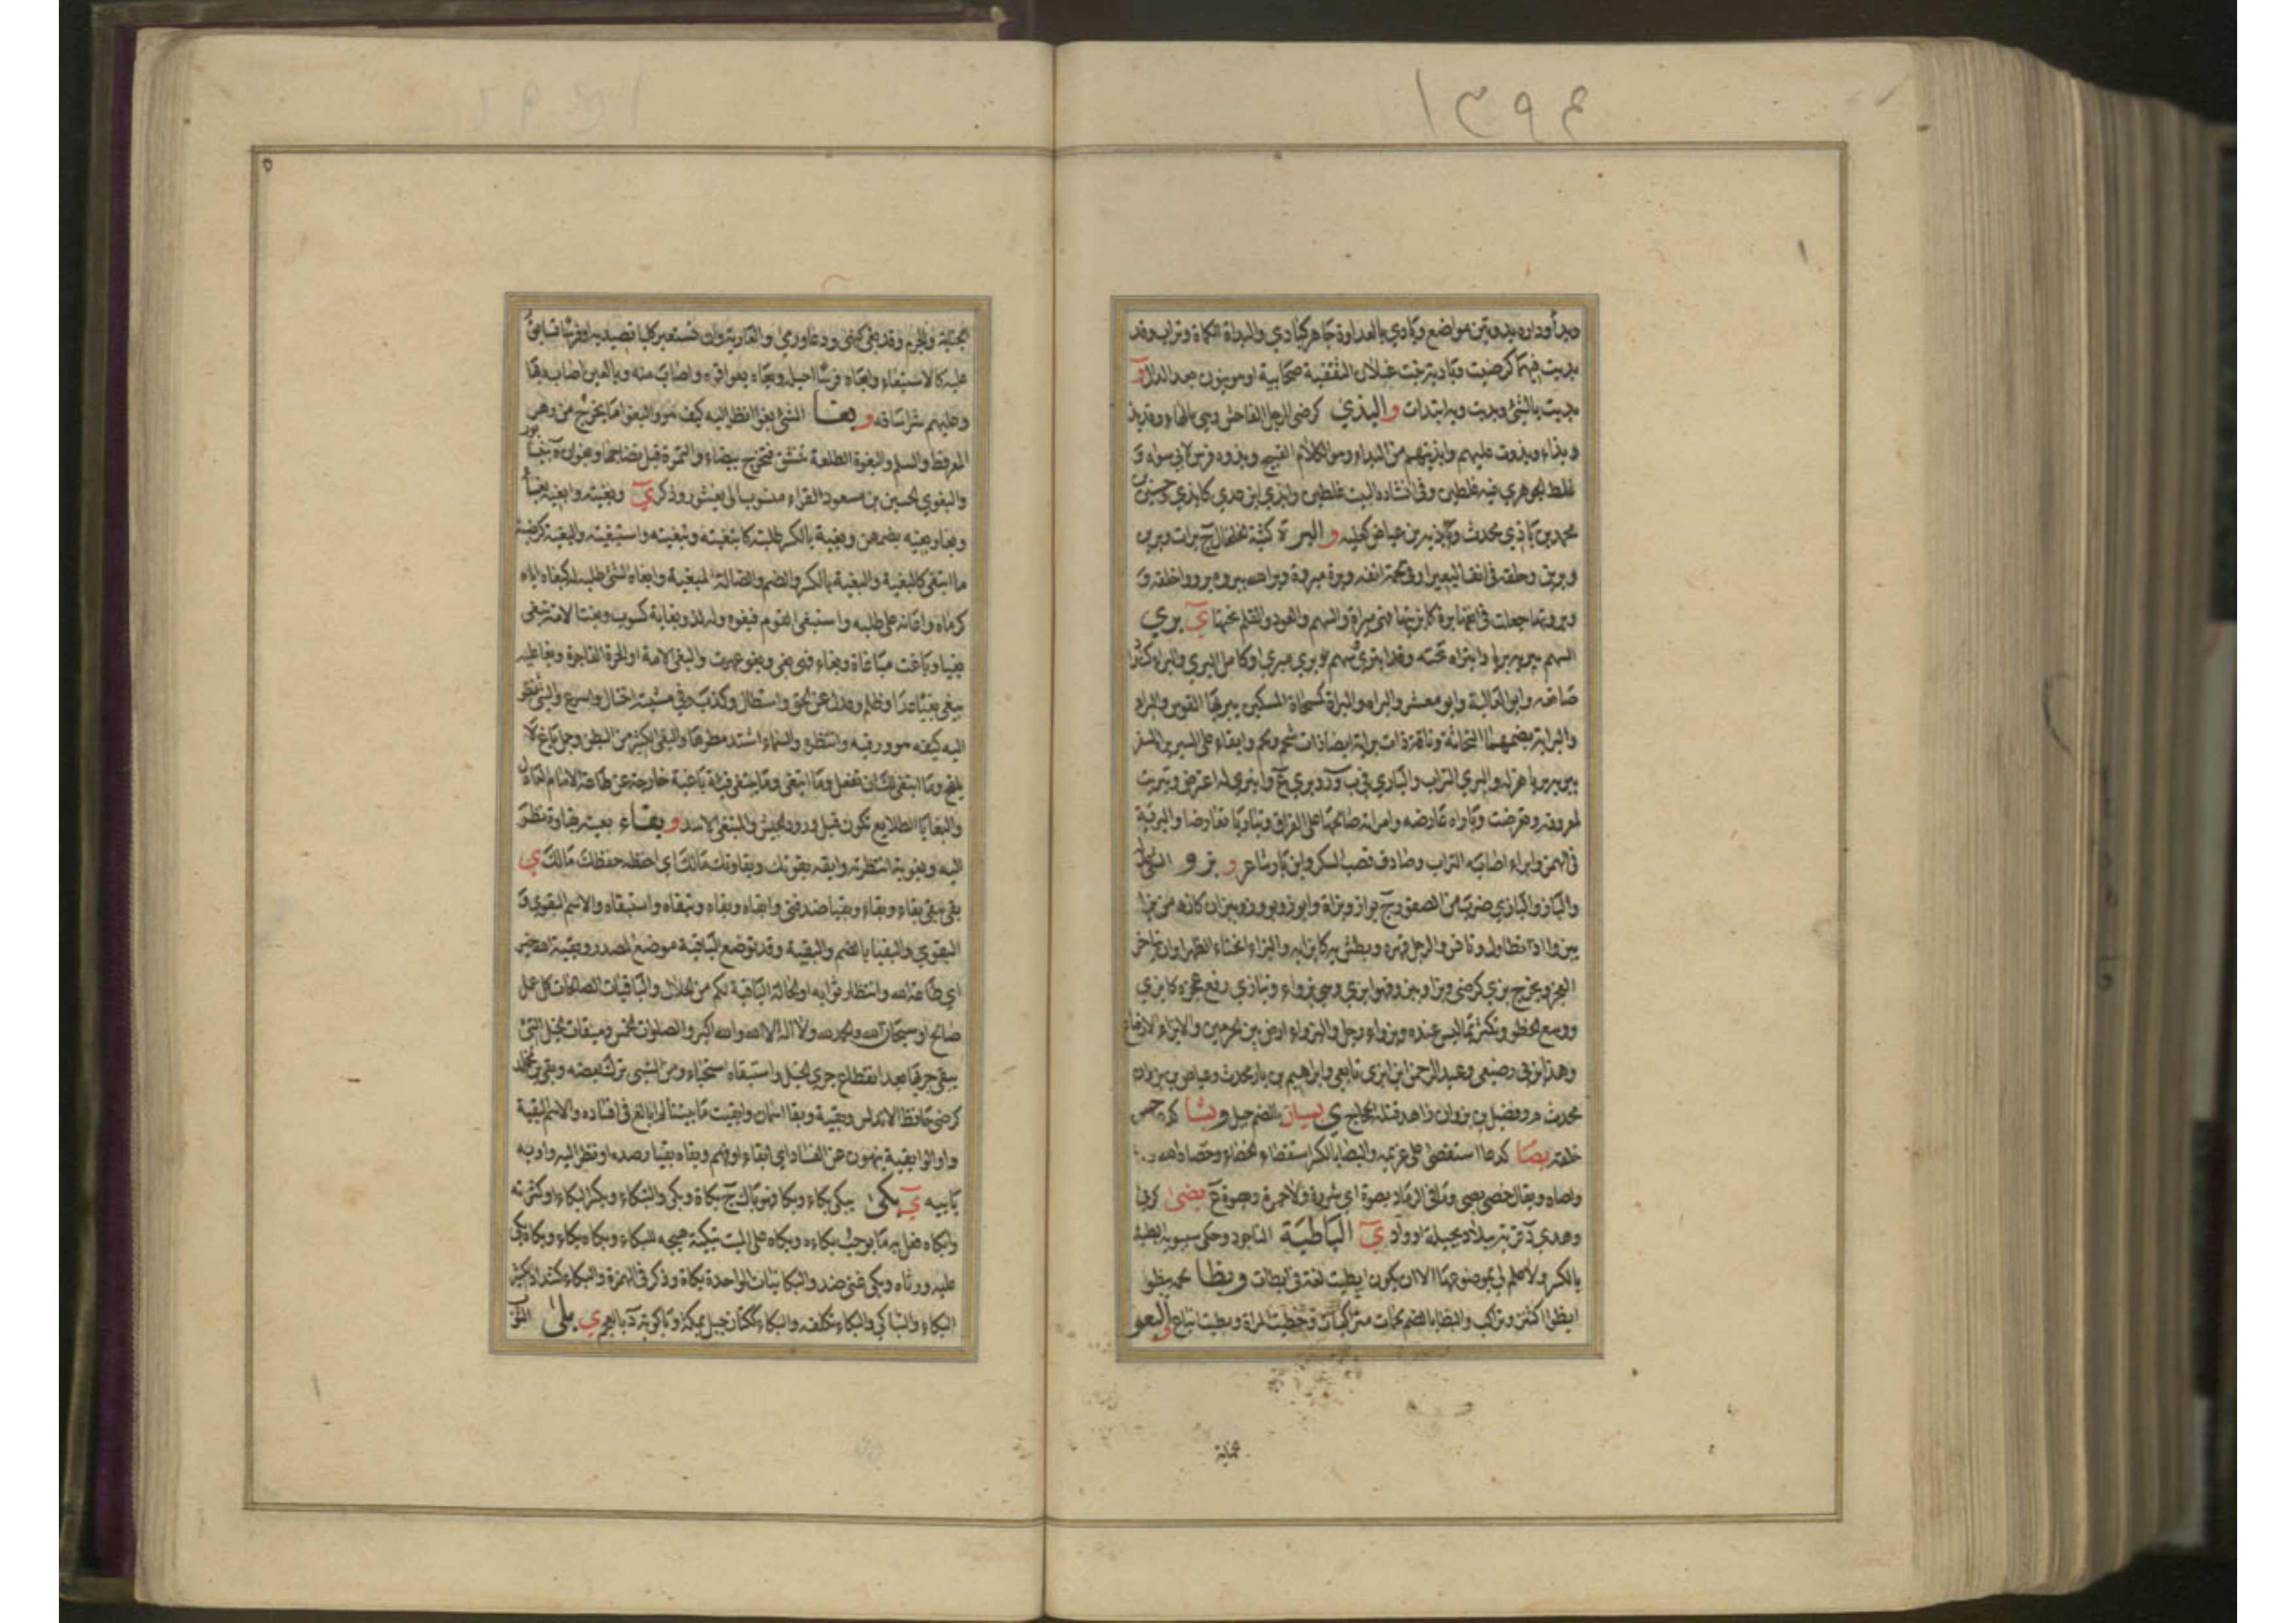 ١٣٩٤
وبدا وداره بدوتين مواضع وبادي بالعداوة جاهر كتبادي والبداة الكماة وتراب وقد
بديت فيهما كرضيت وبادية بنت غيلان الثقفية صحابية او هي بنون بعد الدال و
بديت بالشئ وبديت به ابتدات و البذي كرضي الرجل الفاحش وهي بالهاء وقد بذو
وبذاء وبذوت عليهم وابذيتهم من البذاء وهو الكلام القبيح وبذوه فرس ابي سواج و
غلط الجوهري فيه غلطين وفي انشاده البيت غلطين وابذي ابن عدي كابزي
محمد بن باذي محدث و بن عياض و البرة كثبة الخلخال ج برات وبرين
وبرين وحلقة في انف البعير او في لحمة انفه وبرة مبروة وبراه الله يبروه بروا خلقه و
وبروتها جعلت في انفها برة كابريتها فهي مبراة والسهم والعود والقلم نحتها ي بري
السهم يبريه بريا وابتراه نحته وقد انبرى وسهم بري مبري او كامل البري والبراء كشداد
صانعه وابو العالية وابو معشر والبراءة والمبراة كمسحاة السكين يبرى بها القوس والبراء
والبراية بضمهما النحاتة وناقة ذات براية ايضا ذات شحم ولحم وابقاء على السير براه السفر
يبريه بريا هزله والبري التراب والباري في ب ور وبري ع وانبرى له اعترض وتبريت
لمعروفه تعرضت وباراه عارضه وامراته صالحها على الفراق وتباريا تعارضا والبرية
في الهمز وابرى اصابه التراب وصادف قصب السكر وابن باري شاعر و بزو الشئ عدله
والباز والبازي ضرب من الصقور ج بواز وبزاة وابوز وبؤوز وبيزان كانه من بزا
يبزو اذا تطاول وتانس والرجل قهره وبطش به كابزى به والبزاء انحناء الظهر او ان يتاخر
العجز ويخرج بزي كرضي وبزا وهو ابزى وهي بزواء وتبازى رفع عجزه كابزى
ووسع الخطو وتكثر بما ليس عنده وبزواء رجل والبزواء ارض بين الحرمين والابزاء الارضاع
وهذا بزيي رضيعي وعبد الرحمن ابن ابزى تابعي وابراهيم بن باز محدث وعياض بن بزوان
محدث وفضيل بن بزوان زاهد قتله الحجاج ي بسيان بالضم جبل و بشا كدعا حسن
خلقه بصا كدعا استقصى على غريمه والبصاء بالكسر استقصاء الخصاء وخصاه الله
وبصاه ويقال خصي بصي وما في الرماد بصوة اي شررة ولا جمرة وبصوة ع بضى كرمى
وهدى ة قرية ببلاد بجيلة او واد ي الباطية الناجود وحكى سيبويه البطية
بالكسر ولا علم لي بموضوعها الا ان يكون ابطيت لغة في ابطات و بظا لحمه يبظو
ابظوا اكتنز وتراكب والبظاء بالضم لحمات متراكبات وحظيت المراة وبظيت اتباع و البعو
الجناية والجرم وقد بعى كنهى ودعا ورمى والعارية وان تستعير كلبا تصيد به او فرسا تسابق
عليه كالاستبعاء وابعاه فرسا اخبله وبعاه يعوا قمره واصاب منه وبالعين اصابه بها
وعليهم شرا ساقه و بغا الشئ بغوا نظر اليه كيف هو والبغو ما يخرج من زهرة
العرفط والسلم والبغوة الطلعة تنشق فتخرج بيضاء والثمرة قبل نضاجها وبغوان ة بنيسابور
والبغوي الحسين بن مسعود الفراء منسوب الى بغشور وذكر ي وبغيته وابغيه بغاء
وبغا وبغيه بضمهن وبغية بالكسر طلبته كابتغيته وتبغيته واستبغيته والبغية كرضية
ما ابتغي كالبغية والبغية بالكسر والضم والضالة المبغية وابغاه الشئ طلبه له كبغاه اياه
كرماه واعانه على طلبه واستبغى القوم فبغوه وله لذو بغاية كسوب وبغت الامة تبغي
بغيا وباغت مباغاة وبغاء فهي بغي وبغو عهرت والبغي الامة او الحرة الفاجرة وبغا عليه
يبغي بغيا علا وظلم وعدل عن الحق واستطال وكذب وفي مشيته اختال واسرع والشئ نظر
اليه كيف هو ورقبه وانتظره والسماء اشتد مطرها والبغي الكثير من البطر وجمل باغ لا
يلقح وما انبغى لك ان تفعل وما ابتغى وما ينبغي وفئة باغية خارجة عن طاعة الامام العادل
والبغايا الطلايع تكون قبل ورود الجيش والمبتغي الاسد و بقاء بعينه بقاوة نظر
اليه وبقوته انتظرته وابقه بقوتك وبقاوتك مالك اي احفظه حفظك مالك ي
بقي يبقى بقاء وبقاء وبقيا ضد فني وابقاه وبقاه وتبقاه واستبقاه والاسم البقوى و
البقوي والبقيا بالضم والبقية وقد توضع الباقية موضع المصدر وبقية الله خير
اي طاعة الله وانتظار ثوابه او الحالة الباقية لكم من الحلال والباقيات الصالحات كل عمل
صالح او سبحان الله والحمد لله ولا اله الا الله والله اكبر والصلوات الخمس ومبقيات الخيل التي
يبقى جريها بعد انقطاع جري الخيل واستبقاه استحياه ومن الشئ ترك بعضه وبقي بن مخلد
كرضي حافظ الاندلس وبقية وبقاء اسمان وابقيت ما بيننا لم ابالغ في افساده والاسم البقية
واولوا بقية ينهون عن الفساد اي ابقاء او فهم وبقاه بقيا رصده او نظر اليه واويه
يابيه ي بكى يبكي بكاء وبكا فهو باك ج بكاة وبكي والتبكاء ويكسر البكاء او كثرته
وابكاه فعل به ما يوجب بكاءه وبكاه على الميت تبكية هيجه للبكاء وبكاه بكاء وبكاه بكى
عليه ورثاه وبكى غنى ضد والبكا نبات الواحدة بكاة وذكر في الهمزة والبكاء كشداد كثير
البكاء والتباكي والبكاء تكلفه والبكاء ككتان جبل بمكة وباكوية د بالعجم ي بلي الثوب
ثمانية